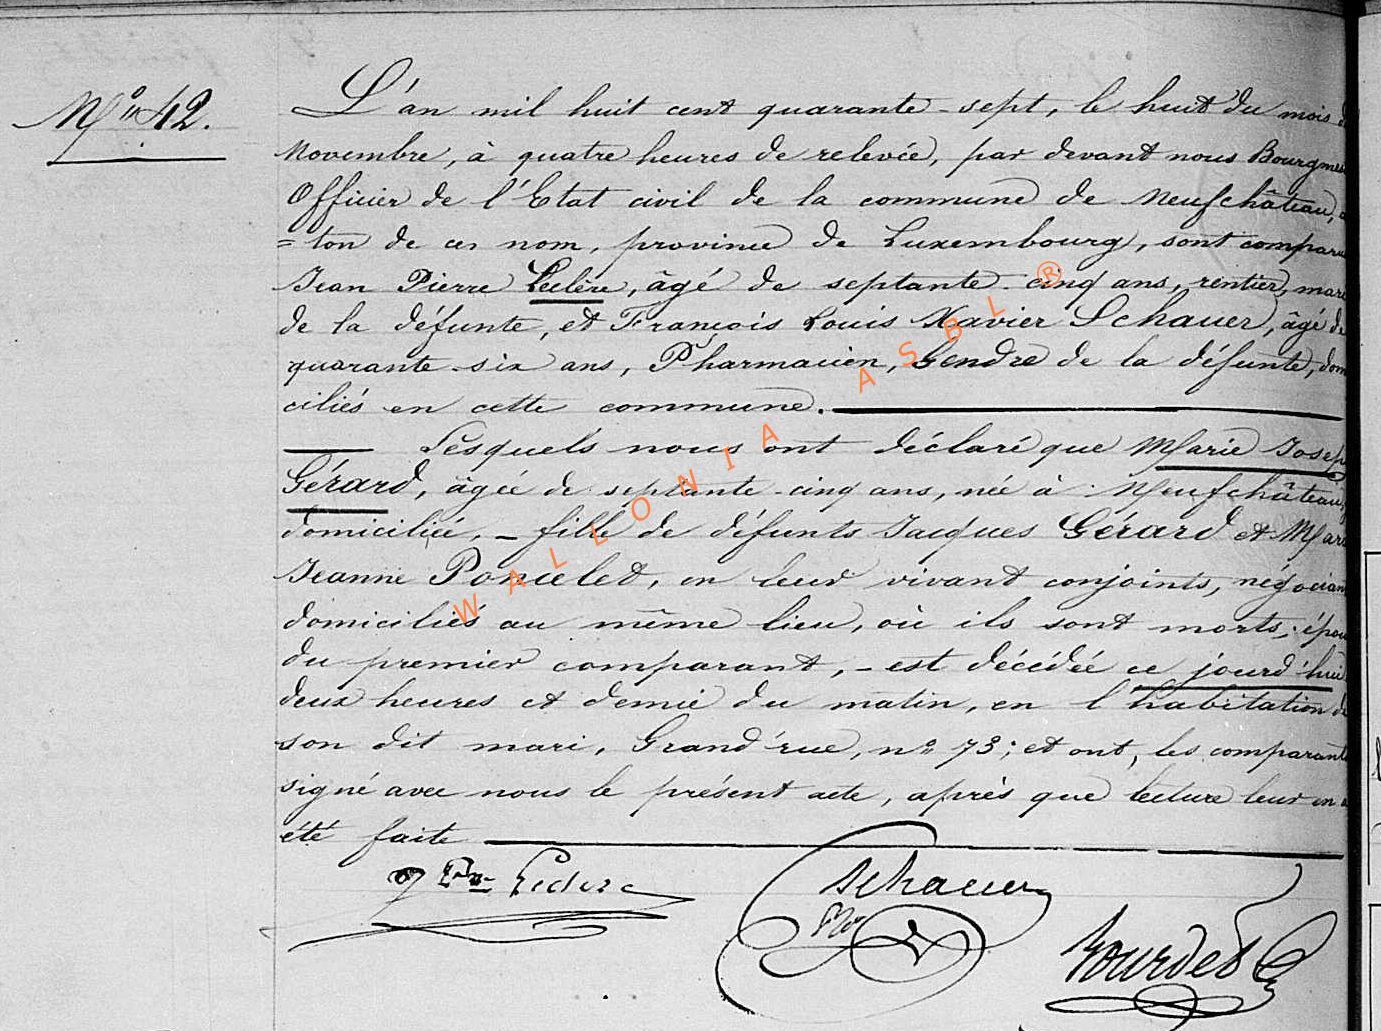 N° 42.
L'an mil huit cent quarante-sept, le huit du mois de
Novembre, à quatre heures de relevée, par devant nous Bourgmes
Officier de l'Etat civil de la commune de Neufchâteau,
=ton de ce nom, province de Luxembourg, sont comparu
Jean Pierre Leclère, âgé de septante-cinq ans, rentier, mari
de la défunte, et François Louis Xavier Schauer, âgé de
quarante-six ans, Pharmacien, Gendre de la défunte, dom
ciliés en cette commune.
Lesquels nous ont déclaré que Marie Josep
Gérard, âgée de septante-cinq ans, née à Neufchâteau,
domiciliée, - fille de défunts Jacques Gérard et Marie
Jeanne Poncelet, en leur vivant conjoints, négociant
domiciliés au même lieu, où ils sont morts, épou
du premier comparant, - est décédée ce jourd'hui
deux heures et demie du matin, en l'habitation de
son dit mari, Grand'rue, n° 73; et ont, les comparants
signé avec nous le présent acte, après que lecture leur en a
été faite
J Pre Leclere
Schauer
Bourdet
WALLONIA ASBL ®